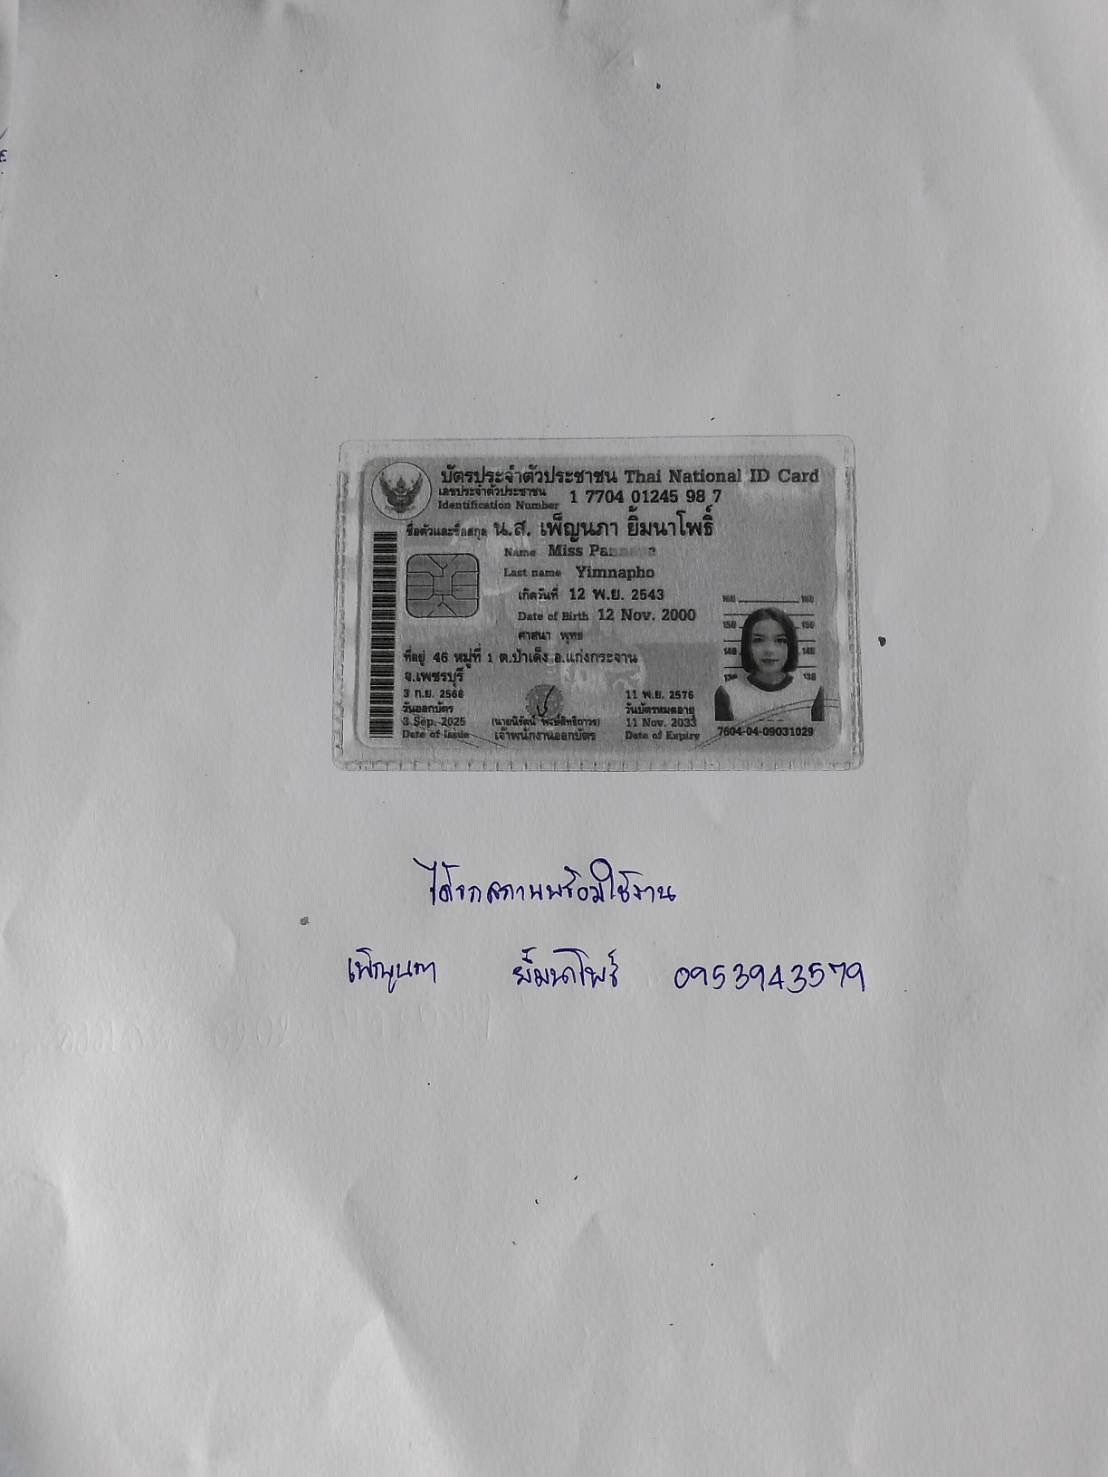 บัตรประจำตัวประชาชน Thai National ID Card
เลขประจำตัวประชาชน
Identification Number 1 7704 01245 98 7
ชื่อตัวและชื่อสกุล น.ส. เพ็ญนภา ยิ้มนาโพธิ์
Name Miss
Last name Yimnapho
เกิดวันที่ 12 พ.ย. 2543
Date of Birth 12 Nov. 2000
ศาสนา พุทธ
ที่อยู่ 46 หมู่ที่ 1 ต.ป่าเด็ง อ.แก่งกระจาน
จ.เพชรบุรี
3 ก.ย. 2568
วันออกบัตร
3 Sep. 2025
Date of Issue
เจ้าพนักงานออกบัตร
11 พ.ย. 2576
วันบัตรหมดอายุ
11 Nov. 2033
Date of Expiry
160 160
150 150
140 140
7604-04-09031029
ได้รถสภาพพร้อมใช้งาน
เพ็ญนภา ยิ้มนาโพธิ์ 0953943579